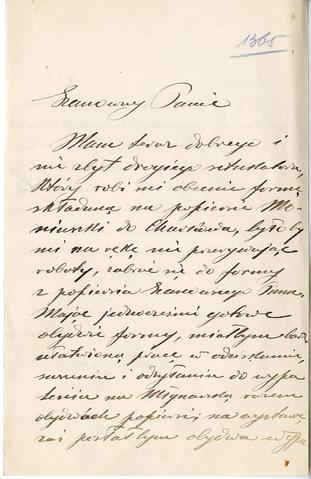 1365
Szanowny Panie
Mam teraz dobrego i
nie zbyt drogiego sztukatora,
który robi mi obecnie formę
składaną na popiersie Mo-
niuszki do Charkowa, byłoby
mi na rękę nie przerywając
roboty, zabrać się do formy
z popiersia Szanownego Pana.
Mając jednocześnie gotowe
obydwie formy, miałbym
ułatwioną pracę w odciskaniu,
suszeniu i odsyłaniu do wypa
lenia na Młynarską razem
obydwóch popiersi, na wystawę
zaś posłałbym obydwa